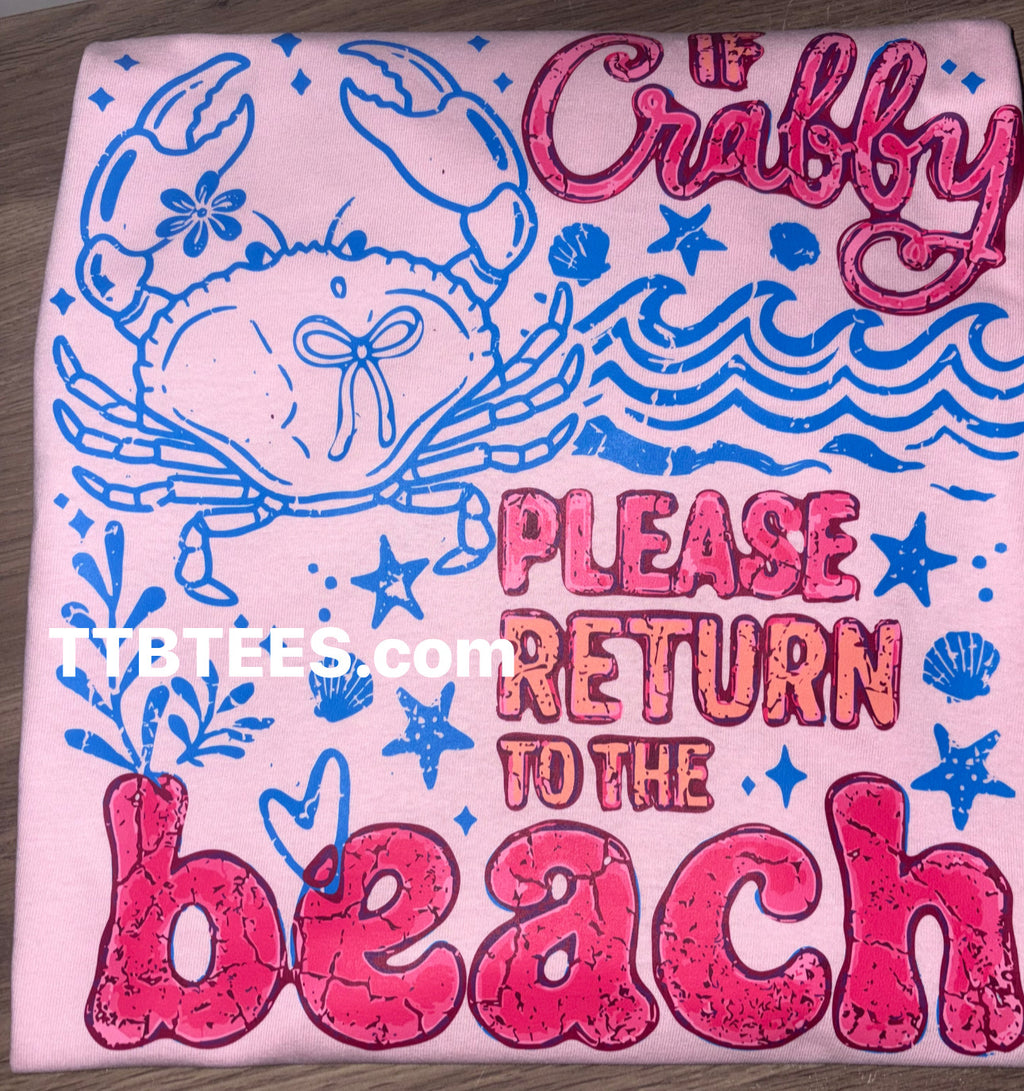 IF
Crabby
PLEASE
RETURN
TO THE
beach
TTBTEES.com